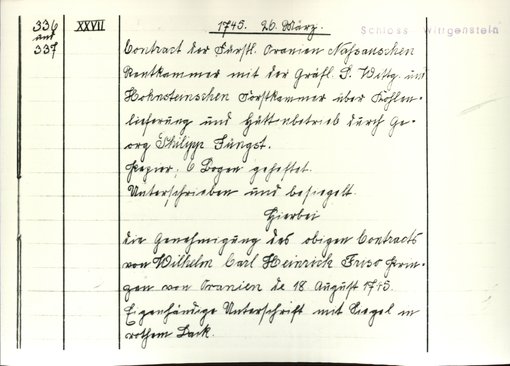 336 XXVII 1745. 26. März. Schloss Wittgenstein
and
337 Contract der Fürstl. Oranien Nassauschen
Rentkammer mit der Gräfl. S. Wittg. und
Hohnsteinschen Forstkammer über Kohlen-
lieferung und Hüttenbetrieb durch Ge-
org Philipp Jüngst.
Papier; 6 Bogen geheftet.
Unterschrieben und besiegelt.
Hierbei
die Genehmigung des obigen Contracts
von Wilhelm Carl Heinrich Friso
von Oranien de 18 August 1745.
Eigenhändige Unterschrift mit Siegel in
rothem Lack.